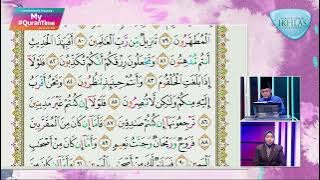 My
#QuranTime
IKHLAS
الْمُطَهَّرُونَ ٧٩ تَنزِيلٌ مِّن رَّبِّ الْعَٰلَمِينَ ٨٠ أَفَبِهَٰذَا الْحَدِيثِ
أَنتُم مُّدْهِنُونَ ٨١ وَتَجْعَلُونَ رِزْقَكُمْ أَنَّكُمْ تُكَذِّبُونَ ٨٢ فَلَوْلَا
إِذَا بَلَغَتِ الْحُلْقُومَ ٨٣ وَأَنتُمْ حِينَئِذٍ تَنظُرُونَ ٨٤ وَنَحْنُ أَقْرَبُ
إِلَيْهِ مِنكُمْ وَلَٰكِن لَّا تُبْصِرُونَ ٨٥ فَلَوْلَا إِن كُنتُمْ غَيْرَ مَدِينِينَ
٨٦ تَرْجِعُونَهَا إِن كُنتُمْ صَٰدِقِينَ ٨٧ فَأَمَّا إِن كَانَ مِنَ الْمُقَرَّبِينَ
٨٨ فَرَوْحٌ وَرَيْحَانٌ وَجَنَّتُ نَعِيمٍ ٨٩ وَأَمَّا إِن كَانَ مِنْ أَصْحَٰبِ